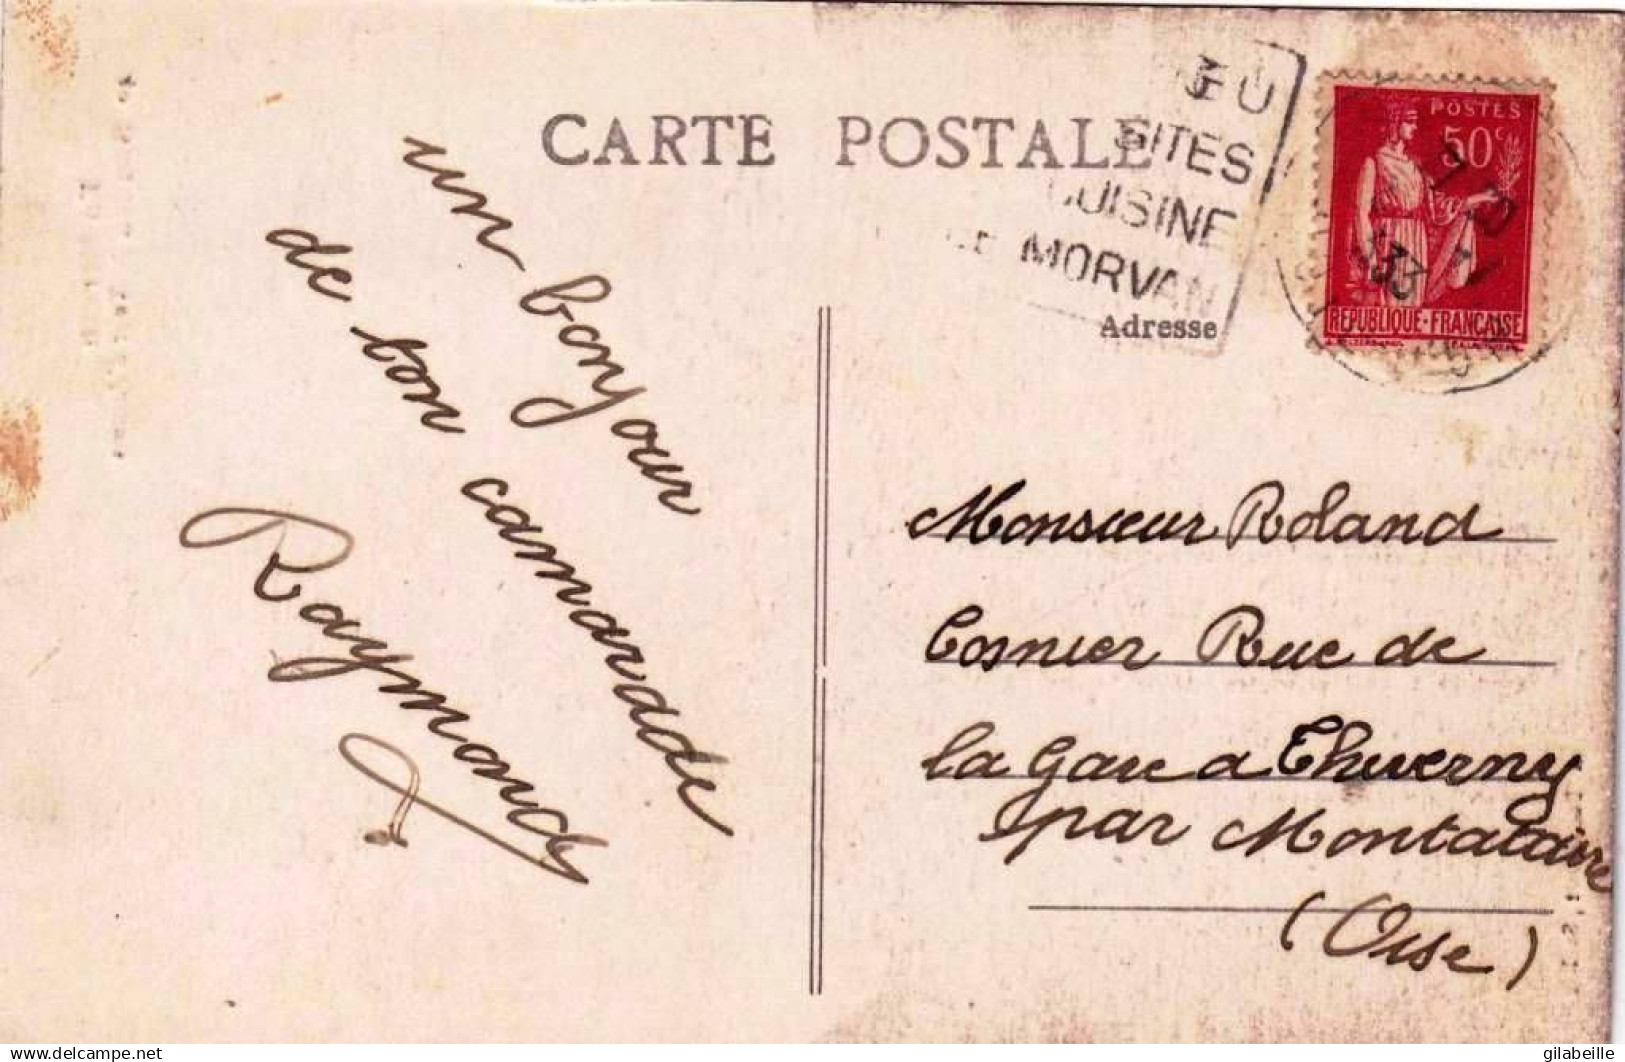 CARTE POSTALE
SITES
CUISINE
MORVAN
POSTES
50c
33
REPUBLIQUE-FRANÇAISE
Adresse
un bonjour
de ton camarade
Raymond
Monsieur Roland
Cosnier Rue de
la Gare a Thiverny
par Montataire
(Oise)
gilabeille